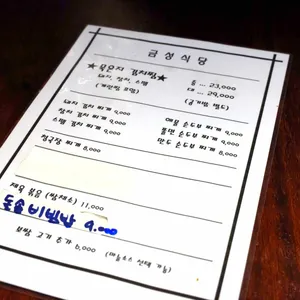 금성식당
★묵은지 김치찜★
돼지, 참치, 스팸 중 ... 23,000
(계란찜 포함) 대 ... 29,000
(공기밥 별도)
돼지 김치 찌개 9,000 해물 순두부 찌개 9,000
참치 김치 찌개 9,000 들깨 순두부 찌개 9,000
스팸 김치 찌개 9,000 만두 순두부 찌개 9,000
청국장 찌개 8,000
제육 볶음 (쌈채소) 11,000
돌솥 비빔밥 9.000
보쌈 고기 추가 6,000 (마늘소스 선택 가능)